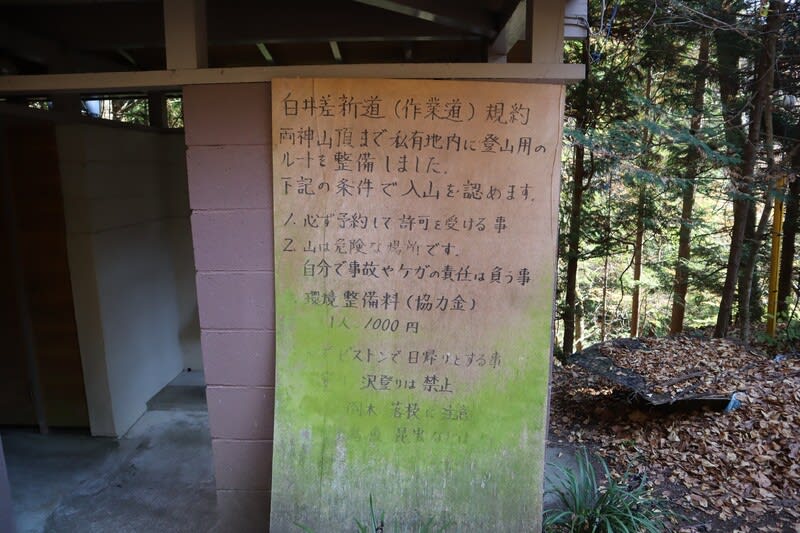 白井差新道(作業道)規約
両神山頂まで私有地内に登山用の
ルートを整備しました。
下記の条件で入山を認めます。
1. 必ず予約して許可を受ける事
2. 山は危険な場所です。
自分で事故やケガの責任は負う事
環境整備料(協力金)
1人、1000円
ピストンで日帰りとする事
沢登りは禁止
倒木 落枝に注意
昆虫